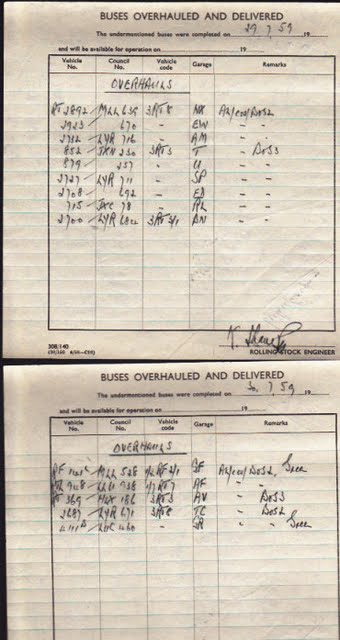 BUSES OVERHAULED AND DELIVERED
The undermentioned buses were completed on 29.7.59 19
and will be available for operation on 19
Vehicle No. Council No. Vehicle code Garage Remarks
OVERHAULS
RT 2892 MLL 639 3RT8 NX
2923 670 EW - -
2732 LYR 716 AM - -
852 JXN 230 3RT3 T - DOS3
879 257 U - -
2727 LYR 711 - SP - -
2708 692 - ED - -
715 JXC 78 - RL - -
2700 LYR AN - -
308/140
K.
ROLLING STOCK ENGINEER
BUSES OVERHAULED AND DELIVERED
The undermentioned buses were completed on 30.7.59 19
and will be available for operation on 19
Vehicle No. Council No. Vehicle code Garage Remarks
OVERHAULS
MLL 528 SF
AF - -
369 HLX 186 3RT3 AV - DOS3
2687 LYR 671 3RT8 TC - DOS2
LUC 460 - SR - Spec